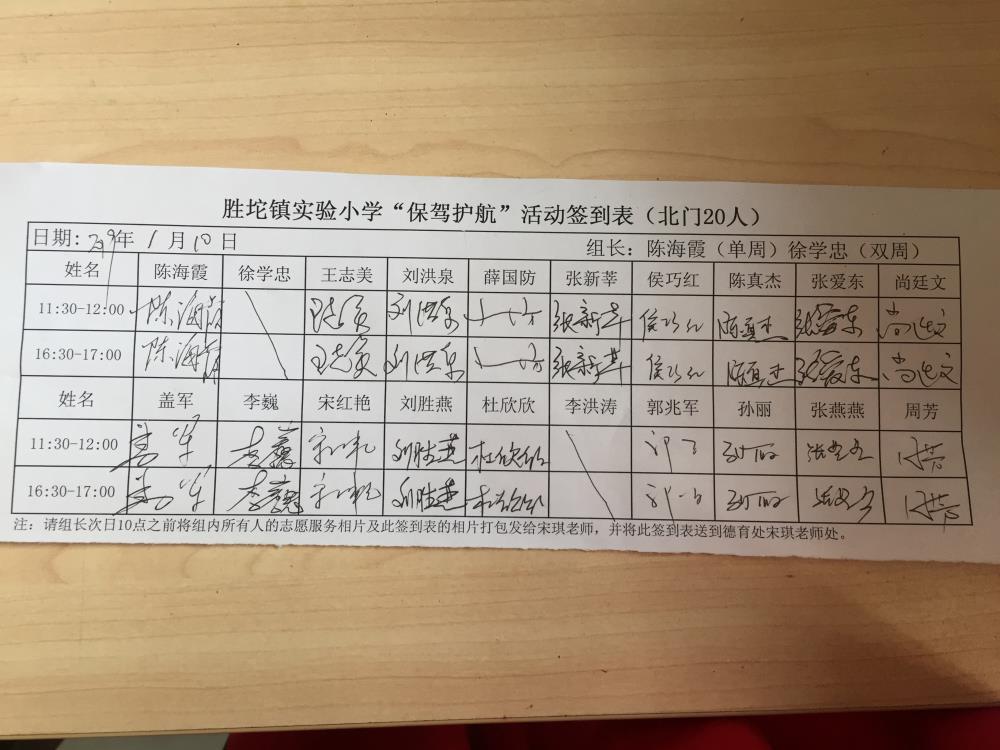 胜坨镇实验小学“保驾护航”活动签到表（北门20人）
日期: 2019年 1月10日 组长：陈海霞（单周）徐学忠（双周）
姓名 陈海霞 徐学忠 王志美 刘洪泉 薛国防 张新莘 侯巧红 陈真杰 张爱东 尚廷文
11:30-12:00 陈海霞 刘洪泉 张新莘 侯巧红 陈真杰 张爱东 尚廷文
16:30-17:00 陈海霞 刘洪泉 张新莘 侯巧红 陈真杰 张爱东 尚廷文
姓名 盖军 李巍 宋红艳 刘胜燕 杜欣欣 李洪涛 郭兆军 孙丽 张燕燕 周芳
11:30-12:00 盖军 李巍 刘胜燕 杜欣欣 孙丽 周芳
16:30-17:00 盖军 李巍 刘胜燕 杜欣欣 孙丽 周芳
注：请组长次日10点之前将组内所有人的志愿服务相片及此签到表的相片打包发给宋琪老师，并将此签到表送到德育处宋琪老师处。